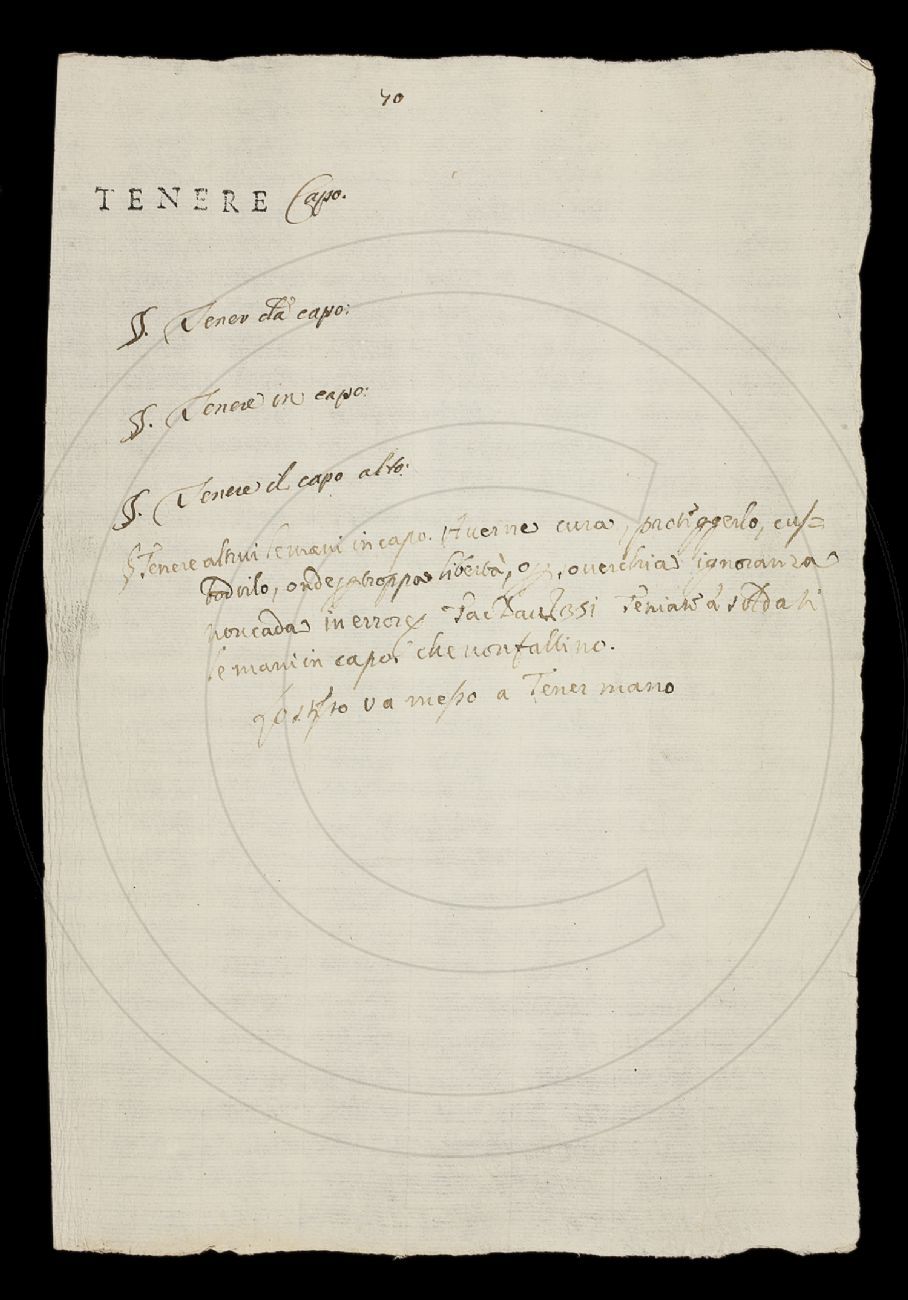 40
TENERE Capo.
§. Tener da capo:
§. Tenere in capo:
§. Tenere il capo alto:
§ Tenere altrui le mani in capo. Averne cura, proteggerlo, cus=
todirlo, onde p troppa libertà, o p soverchia ignoranza
non cada in errore Tac Dav 351 teniate a soldati
le mani in capo che non fallino.
qōsto va messo a Tener mano